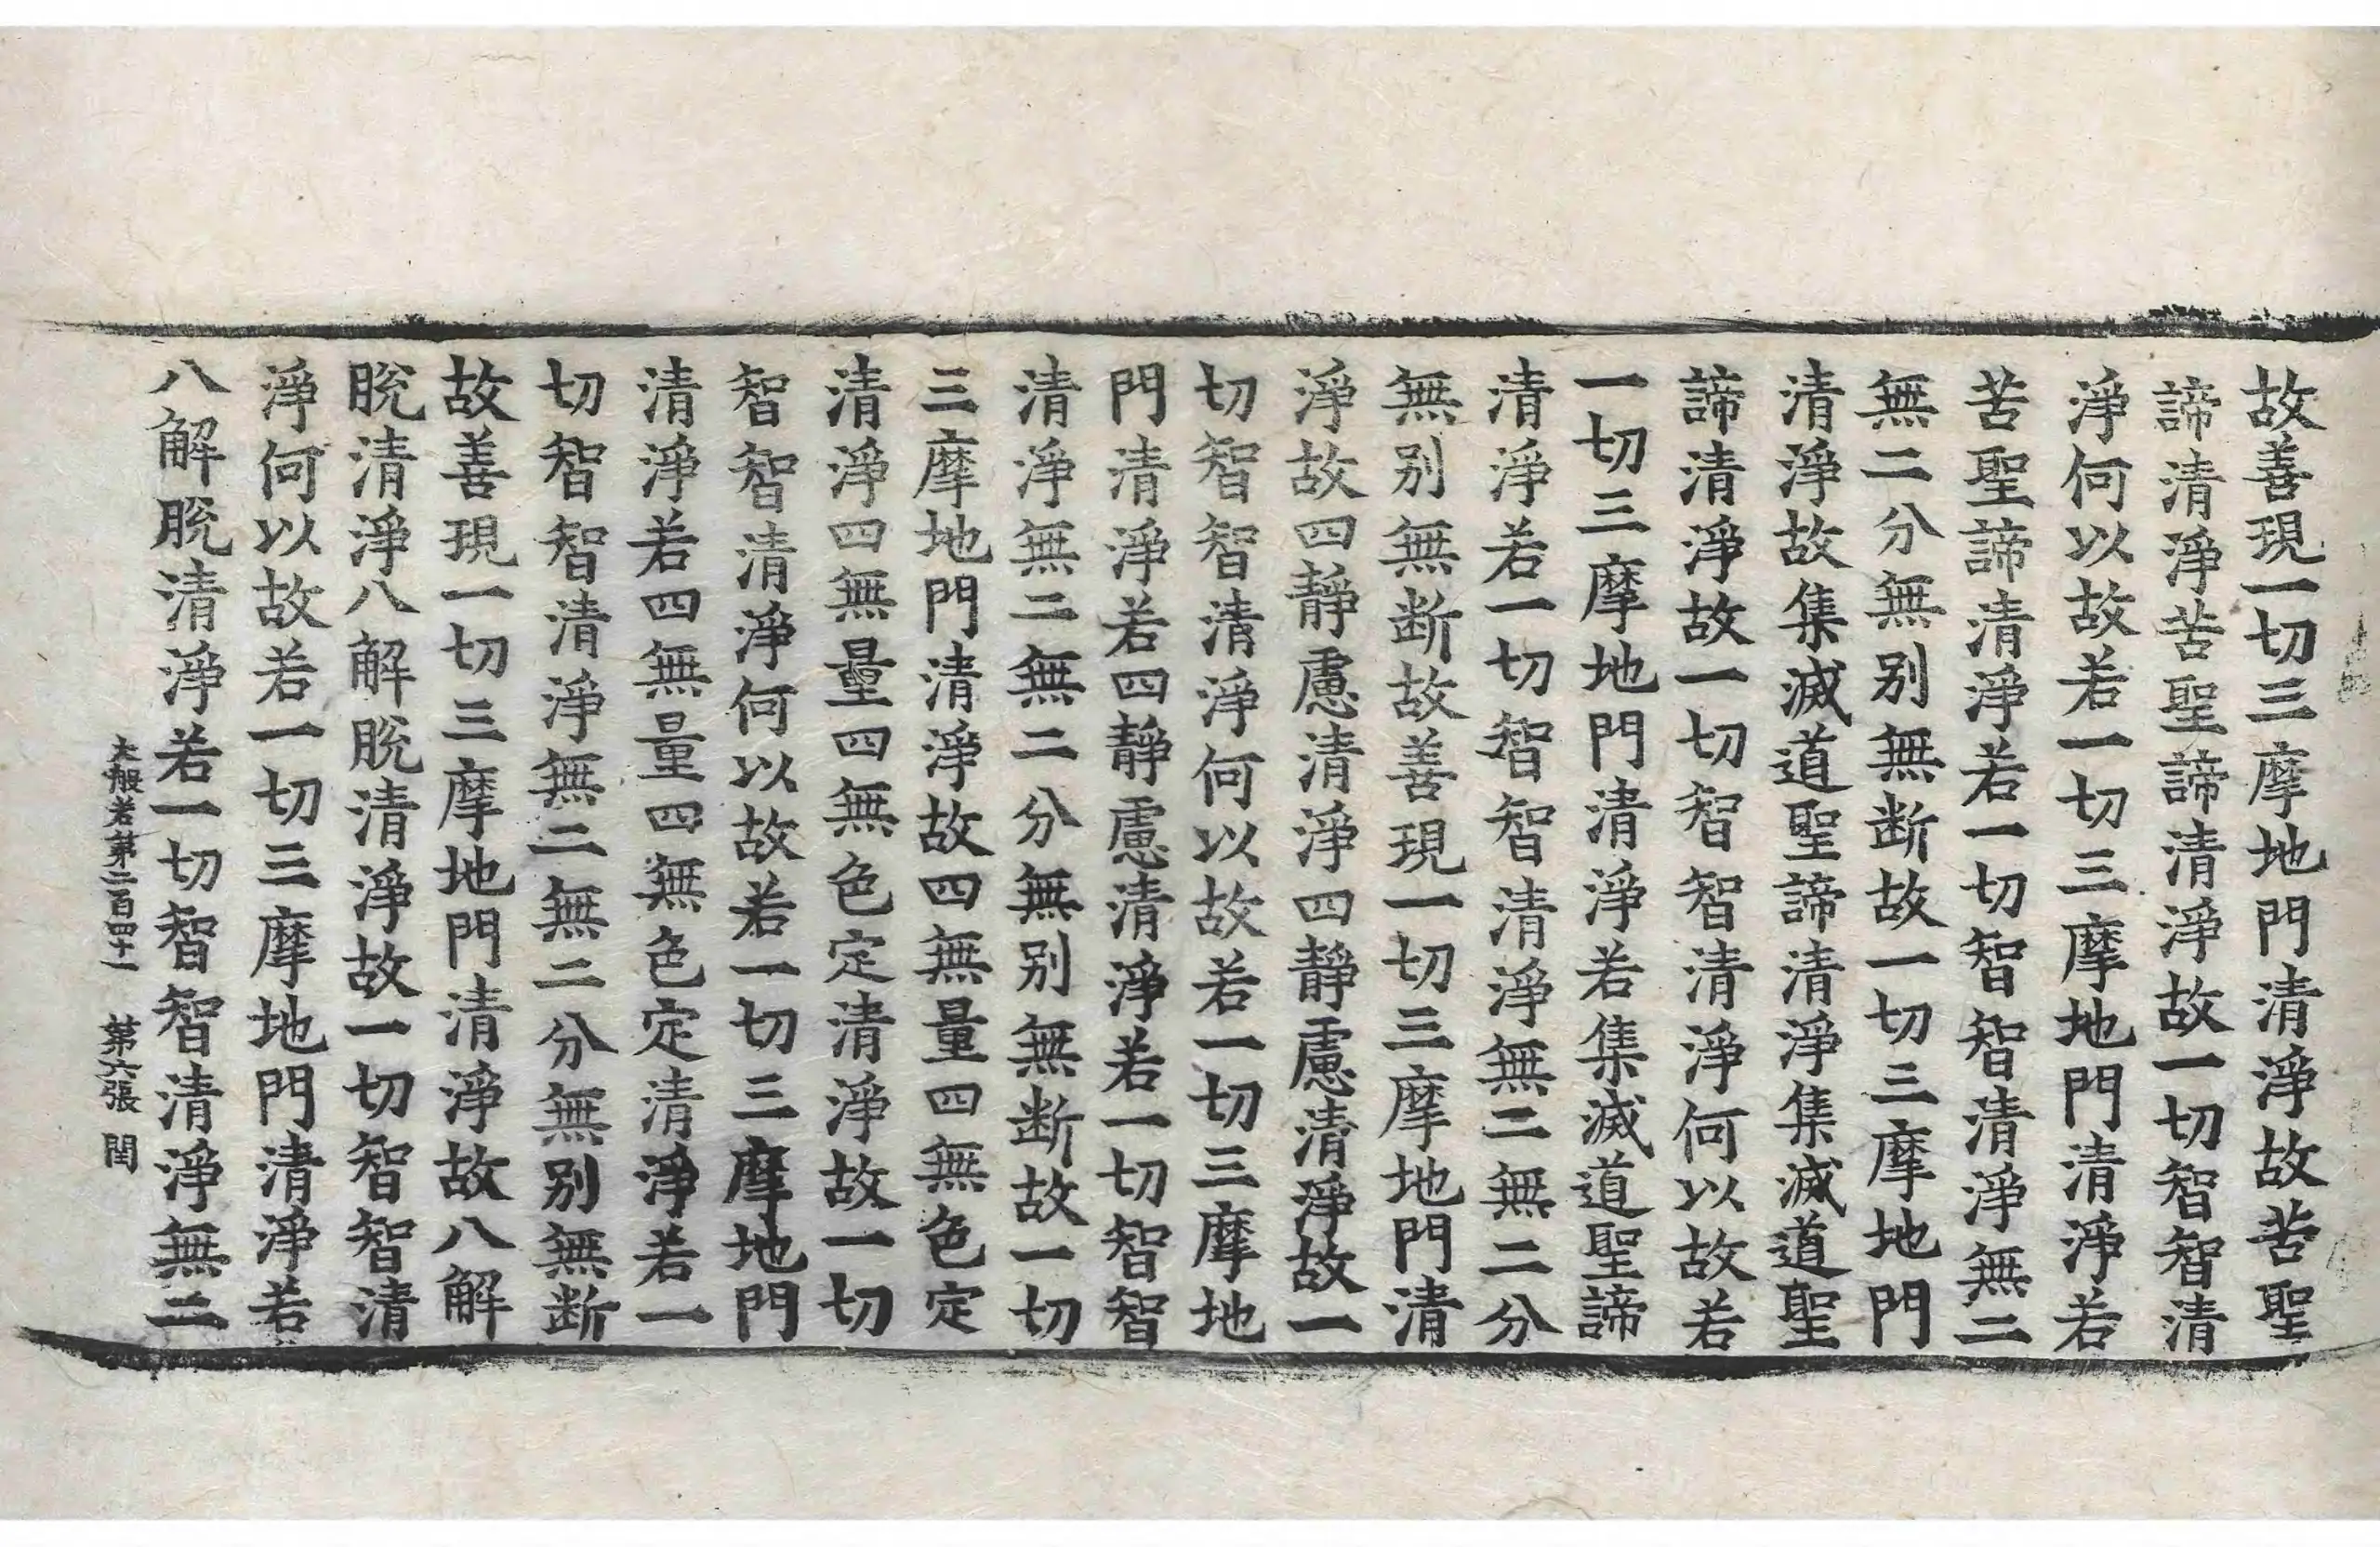 故善現一切三摩地門清淨故苦聖
諦清淨苦聖諦清淨故一切智智清
淨何以故若一切三摩地門清淨若
苦聖諦清淨若一切智智清淨無二
無二分無别無断故一切三摩地門
清淨故集滅道聖諦清淨集滅道聖
諦清淨故一切智智清淨何以故若
一切三摩地門清淨若集滅道聖諦
清淨若一切智智清淨無二無二分
無别無断故善現一切三摩地門清
淨故四靜慮清淨四靜慮清淨故一
切智智清淨何以故若一切三摩地
門清淨若四靜慮清淨若一切智智
清淨無二無二分無别無断故一切
三摩地門清淨故四無量四無色定
清淨四無量四無色定清淨故一切
智智清淨何以故若一切三摩地門
清淨若四無量四無色定清淨若一
切智智清淨無二無二分無别無断
故善現一切三摩地門清淨故八解
脫清淨八解脫清淨故一切智智清
淨何以故若一切三摩地門清淨若
八解脫清淨若一切智智清淨無二
大般若第二百四十一 第六張 閏